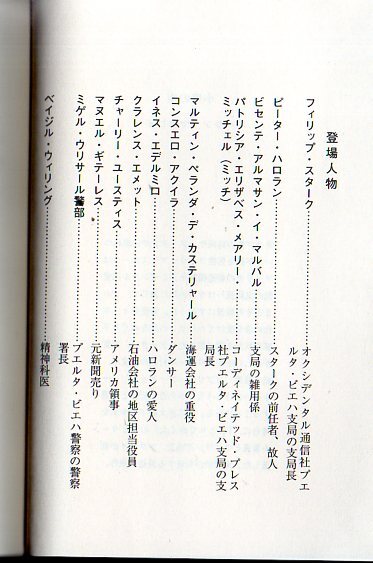 登場人物
フィリップ・スターク………オクシデンタル通信社プエ
ルタ・ビエハ支局の支局長
ピーター・ハロラン………スタークの前任者、故人
ビセンテ・アルマサン・イ・マルバル………支局の雑用係
パトリシア・エリザベス・メアリー・
ミッチェル（ミッチ）………コーディネイテッド・プレス
社プエルタ・ビエハ支局の支
局長
マルティン・ペランダ・デ・カステリャール………海運会社の重役
コンスエロ・アクイラ………ダンサー
イネス・エデルミロ………ハロランの愛人
クラレンス・エメット………石油会社の地区担当役員
チャーリー・ユースティス………アメリカ領事
マヌエル・ギテーレス………元新聞売り
ミゲル・ウリサール警部………プエルタ・ビエハ警察の警察
署長
ベイジル・ウィリング………精神科医